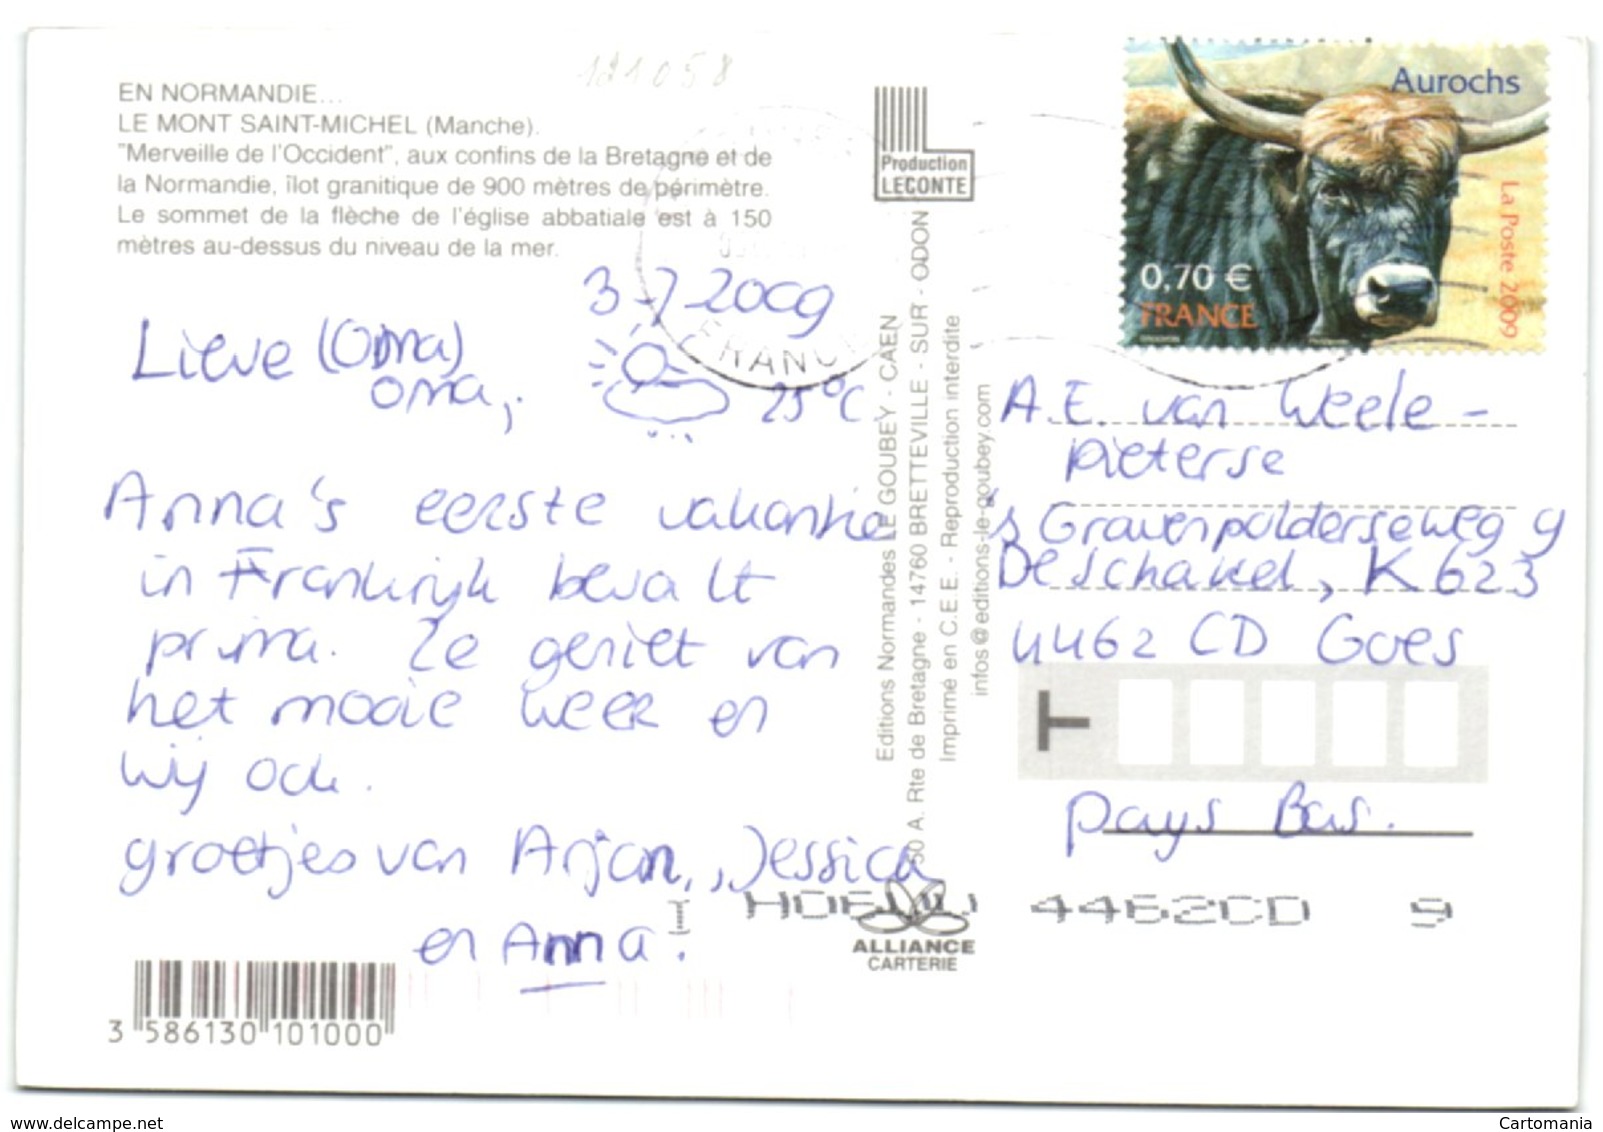 121058
EN NORMANDIE...
LE MONT SAINT-MICHEL (Manche).
"Merveille de l'Occident", aux confins de la Bretagne et de
la Normandie, îlot granitique de 900 mètres de périmètre.
Le sommet de la flèche de l'église abbatiale est à 150
mètres au-dessus du niveau de la mer.
3-7-2009
Lieve (Oma)
oma,
25°C
Anna's eerste vakantie
in Frankrijk bevalt
prima. Ze geniet van
het mooie weer en
wij ook.
groetjes van Arjan, Jessica
en Anna.
3 586130 101000
Production
LECONTE
Editions Normandes LE GOUBEY - CAEN
50 A. Rte de Bretagne - 14760 BRETTEVILLE - SUR - ODON
Imprimé en C.E.E. - Reproduction interdite
infos@editions-le-goubey.com
ALLIANCE
CARTERIE
FRANCE
Aurochs
La Poste 2009
0,70 €
FRANCE
A.E. van Weele -
Pieterse
's Gravenpolderseweg 9
De Schakel, K623
4462 CD Goes
T
Pays Bas.
4462CD 9
www.delcampe.net
Cartomania